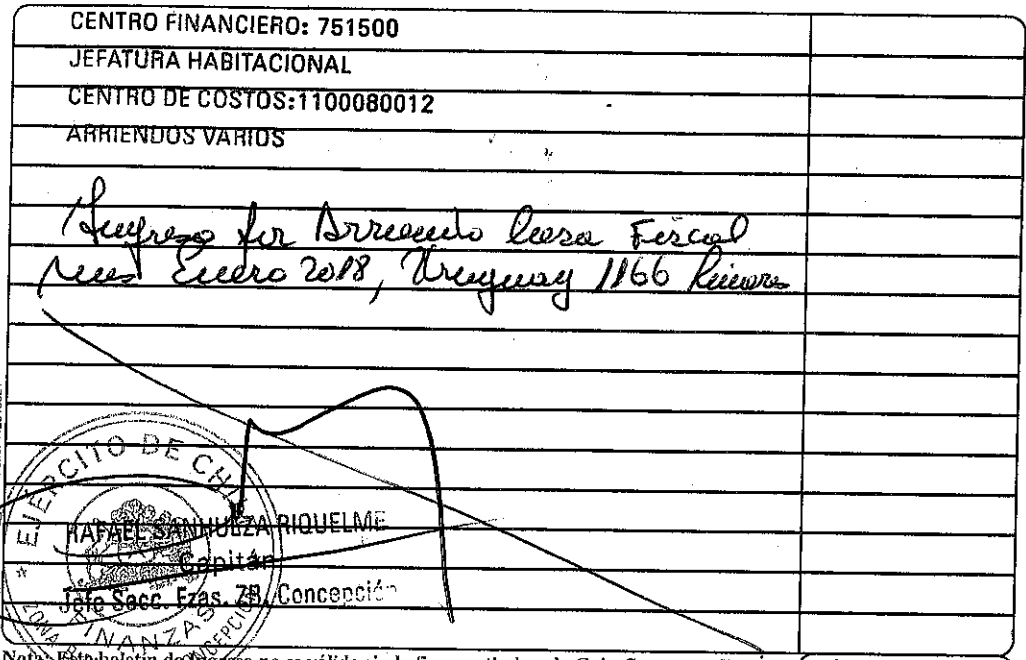 CENTRO FINANCIERO: 751500
JEFATURA HABITACIONAL
CENTRO DE COSTOS:1100080012
ARRIENDOS VARIOS
Ingreso por Arriendo Casa Fiscal
mes Enero 2018, Uruguay 1166 Linares
EJERCITO DE CHI
RAFAEL SANHUEZA RIQUELME
Capitán
Jefe Secc. Fzas. ZB. Concepción
ZONA
FINANZAS
Nota: Este boletín de Ingreso no es válido sin la firma y timbre de